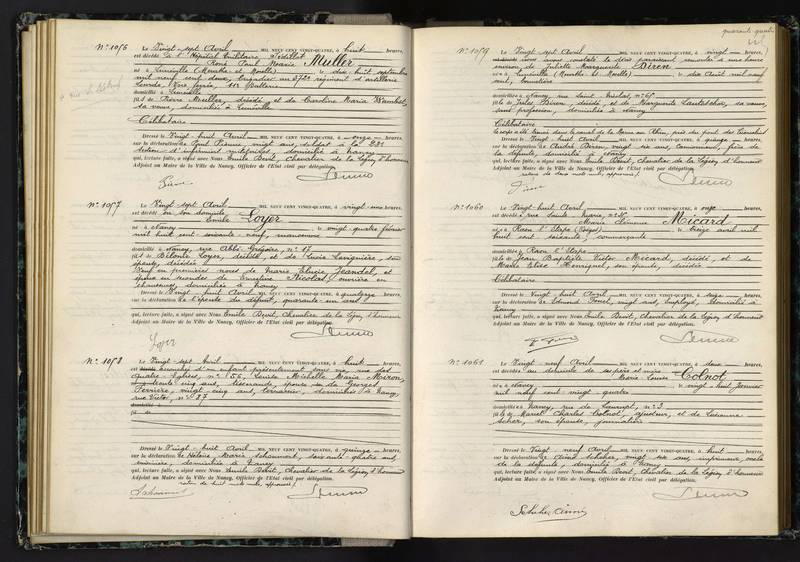 N° 1056
Le Vingt-sept Avril MIL NEUF CENT VINGT-QUATRE, à huit heures,
est décédé à l'Hôpital Militaire Sédillot
René Paul Marie Muller
né à Lunéville (Meurthe et Moselle) le dix huit septembre
mil neuf cent deux, au régiment d'artillerie
Batterie
domicilié à Lunéville
fils de Pierre Muller, décédé et de Caroline Marie
sa veuve, domiciliée à Lunéville
Célibataire
Dressé le Vingt-huit Avril MIL NEUF CENT VINGT-QUATRE, à onze heures,
sur la déclaration de Paul Pierre, vingt ans, soldat à la
section d'infirmiers militaires, domicilié à Nancy
qui, lecture faite, a signé avec Nous Emile Bevit, Chevalier de la Légion d'honneur
Adjoint au Maire de la Ville de Nancy, Officier de l'Etat civil par délégation.
N° 1057
Le Vingt-sept Avril MIL NEUF CENT VINGT-QUATRE, à vingt-une heures,
est décédé en son domicile
Emile Loyer
né à Nancy le vingt quatre février
mil huit cent soixante-neuf, manoeuvre
domicilié à Nancy, rue Abbé Grégoire, n° 17
fils de Loyer, décédé, et de Lucie Lavignière, son
épouse, décédée
Veuf en premières noces de Marie Jeandel, et
époux en secondes de Ernestine Nicolas, ouvrière en
chaussures, domiciliée à Nancy
Dressé le Vingt-huit Avril MIL NEUF CENT VINGT-QUATRE, à quatorze heures,
sur la déclaration de l'épouse du défunt, quarante-un ans
qui, lecture faite, a signé avec Nous Emile Bevit, Chevalier de la Légion d'honneur
Adjoint au Maire de la Ville de Nancy, Officier de l'Etat civil par délégation.
Loyer
N° 1058
Le Vingt-sept Avril MIL NEUF CENT VINGT-QUATRE, à huit heures,
est accouchée d'un enfant présentement sans vie, rue des
Quatre Eglises, n° 56, Michelle Marie Miron,
trente cinq ans, épouse de Georges
Ferrière, vingt cinq ans, domiciliés à Nancy,
rue Victor, n° 27
Dressé le Vingt-huit Avril MIL NEUF CENT VINGT-QUATRE, à quinze heures,
sur la déclaration de Marie Schaumont, soixante quatre ans,
domiciliée à Nancy
qui, lecture faite, a signé avec Nous Emile Bevit, Chevalier de la Légion d'honneur
Adjoint au Maire de la Ville de Nancy, Officier de l'Etat civil par délégation.
N° 1059
Le Vingt-sept Avril MIL NEUF CENT VINGT-QUATRE, à vingt heures,
nous avons constaté le décès paraissant remonter à une heure
environ de Juliette Marguerite Biren
née à Lunéville (Meurthe et Moselle) le dix Août mil neuf
cent,
domiciliée à Nancy, rue Saint Nicolas, n°
fille de Jules Biren, décédé, et de Marguerite sa veuve,
sans profession, domiciliée à Nancy
Célibataire
Le corps a été trouvé dans le canal de la Marne au Rhin, près du pont des
Dressé le Vingt-huit Avril MIL NEUF CENT VINGT-QUATRE, à quinze heures,
sur la déclaration de André Biren, vingt six ans, frère de
la défunte, domicilié à Nancy
qui, lecture faite, a signé avec Nous Emile Bevit, Chevalier de la Légion d'honneur
Adjoint au Maire de la Ville de Nancy, Officier de l'Etat civil par délégation.
N° 1060
Le Vingt-huit Avril MIL NEUF CENT VINGT-QUATRE, à onze heures,
est décédée rue Sainte Marie, n°
Marie Micard
née à Raon l'Etape (Vosges) le treize avril mil
huit cent soixante, commerçante
domiciliée à Raon l'Etape
fille de Jean Baptiste Victor Micard, décédé, et de
Marie Elise Henriquel, son épouse, décédée
Célibataire
Dressé le Vingt-huit Avril MIL NEUF CENT VINGT-QUATRE, à seize heures,
sur la déclaration de vingt ans, employé, domicilié à
Nancy
qui, lecture faite, a signé avec Nous Emile Bevit, Chevalier de la Légion d'honneur
Adjoint au Maire de la Ville de Nancy, Officier de l'Etat civil par délégation.
N° 1061
Le Vingt-neuf Avril MIL NEUF CENT VINGT-QUATRE, à deux heures,
est décédée au domicile de ses père et mère
Marie Louise Colnot
née à Nancy le vingt-huit Janvier
mil neuf cent vingt-quatre
domiciliée à Nancy, rue de n° 3
fille de Marcel Charles Colnot, ajusteur, et de Suzanne
son épouse, journalière
Dressé le Vingt-neuf Avril MIL NEUF CENT VINGT-QUATRE, à huit heures,
sur la déclaration de vingt six ans, imprimeur, oncle
de la défunte, domicilié à Nancy
qui, lecture faite, a signé avec Nous Emile Bevit, Chevalier de la Légion d'honneur
Adjoint au Maire de la Ville de Nancy, Officier de l'Etat civil par délégation.